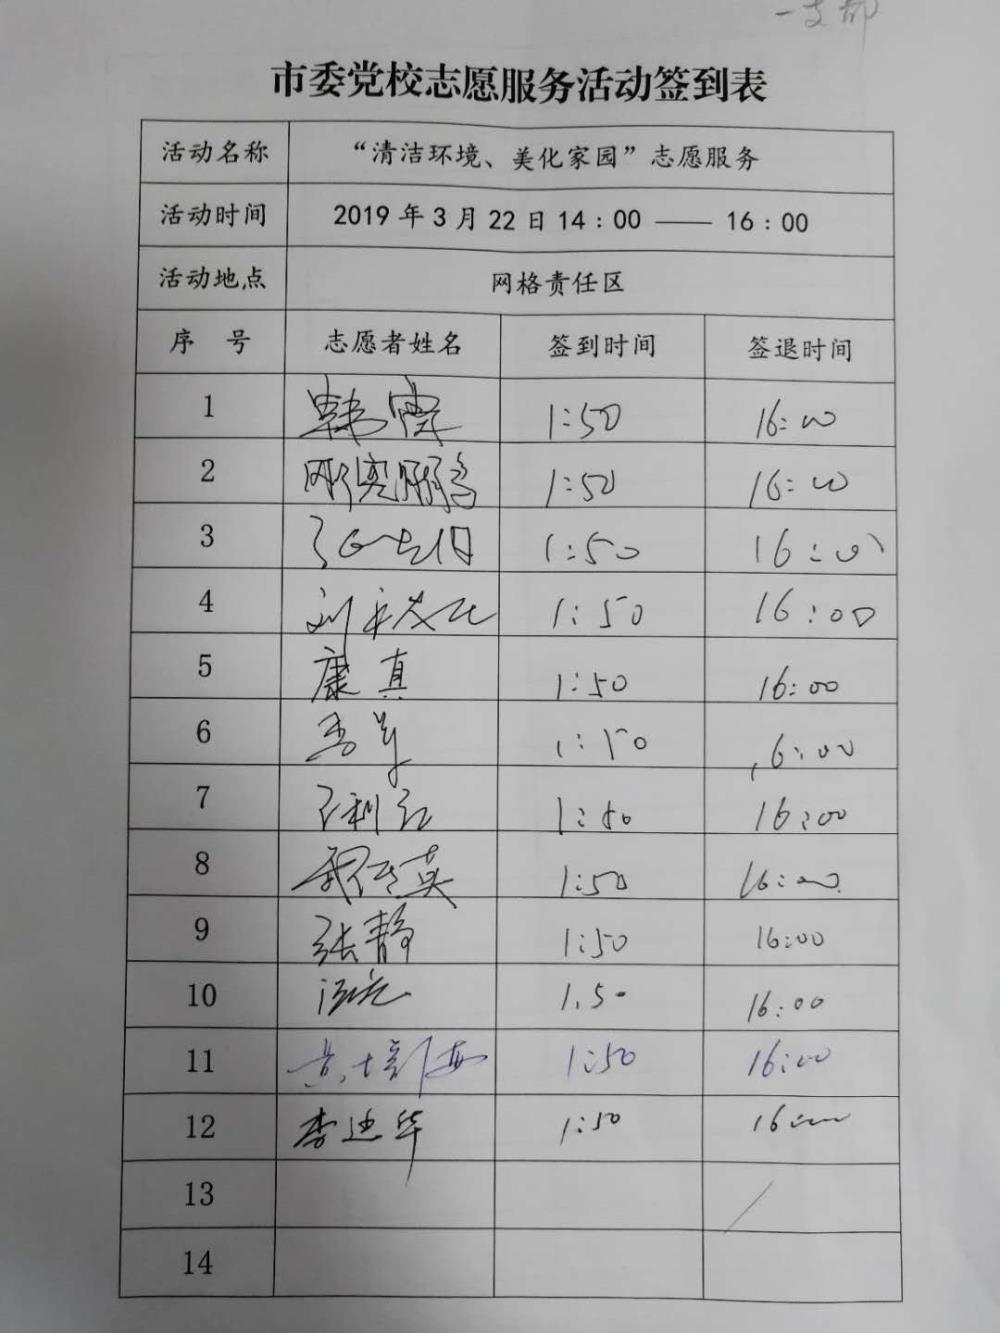 一支部
市委党校志愿服务活动签到表
活动名称 “清洁环境、美化家园”志愿服务
活动时间 2019 年 3 月 22 日 14：00 —— 16：00
活动地点 网格责任区
序 号 志愿者姓名 签到时间 签退时间
1 1:50 16:00
2 1:50 16:00
3 1:50 16:00
4 刘 1:50 16:00
5 康真 1:50 16:00
6 1:50 16:00
7 利红 1:50 16:00
8 英 1:50 16:00
9 张静 1:50 16:00
10 1.50 16:00
11 1:50 16:00
12 李迪华 1:50 16:00
13
14